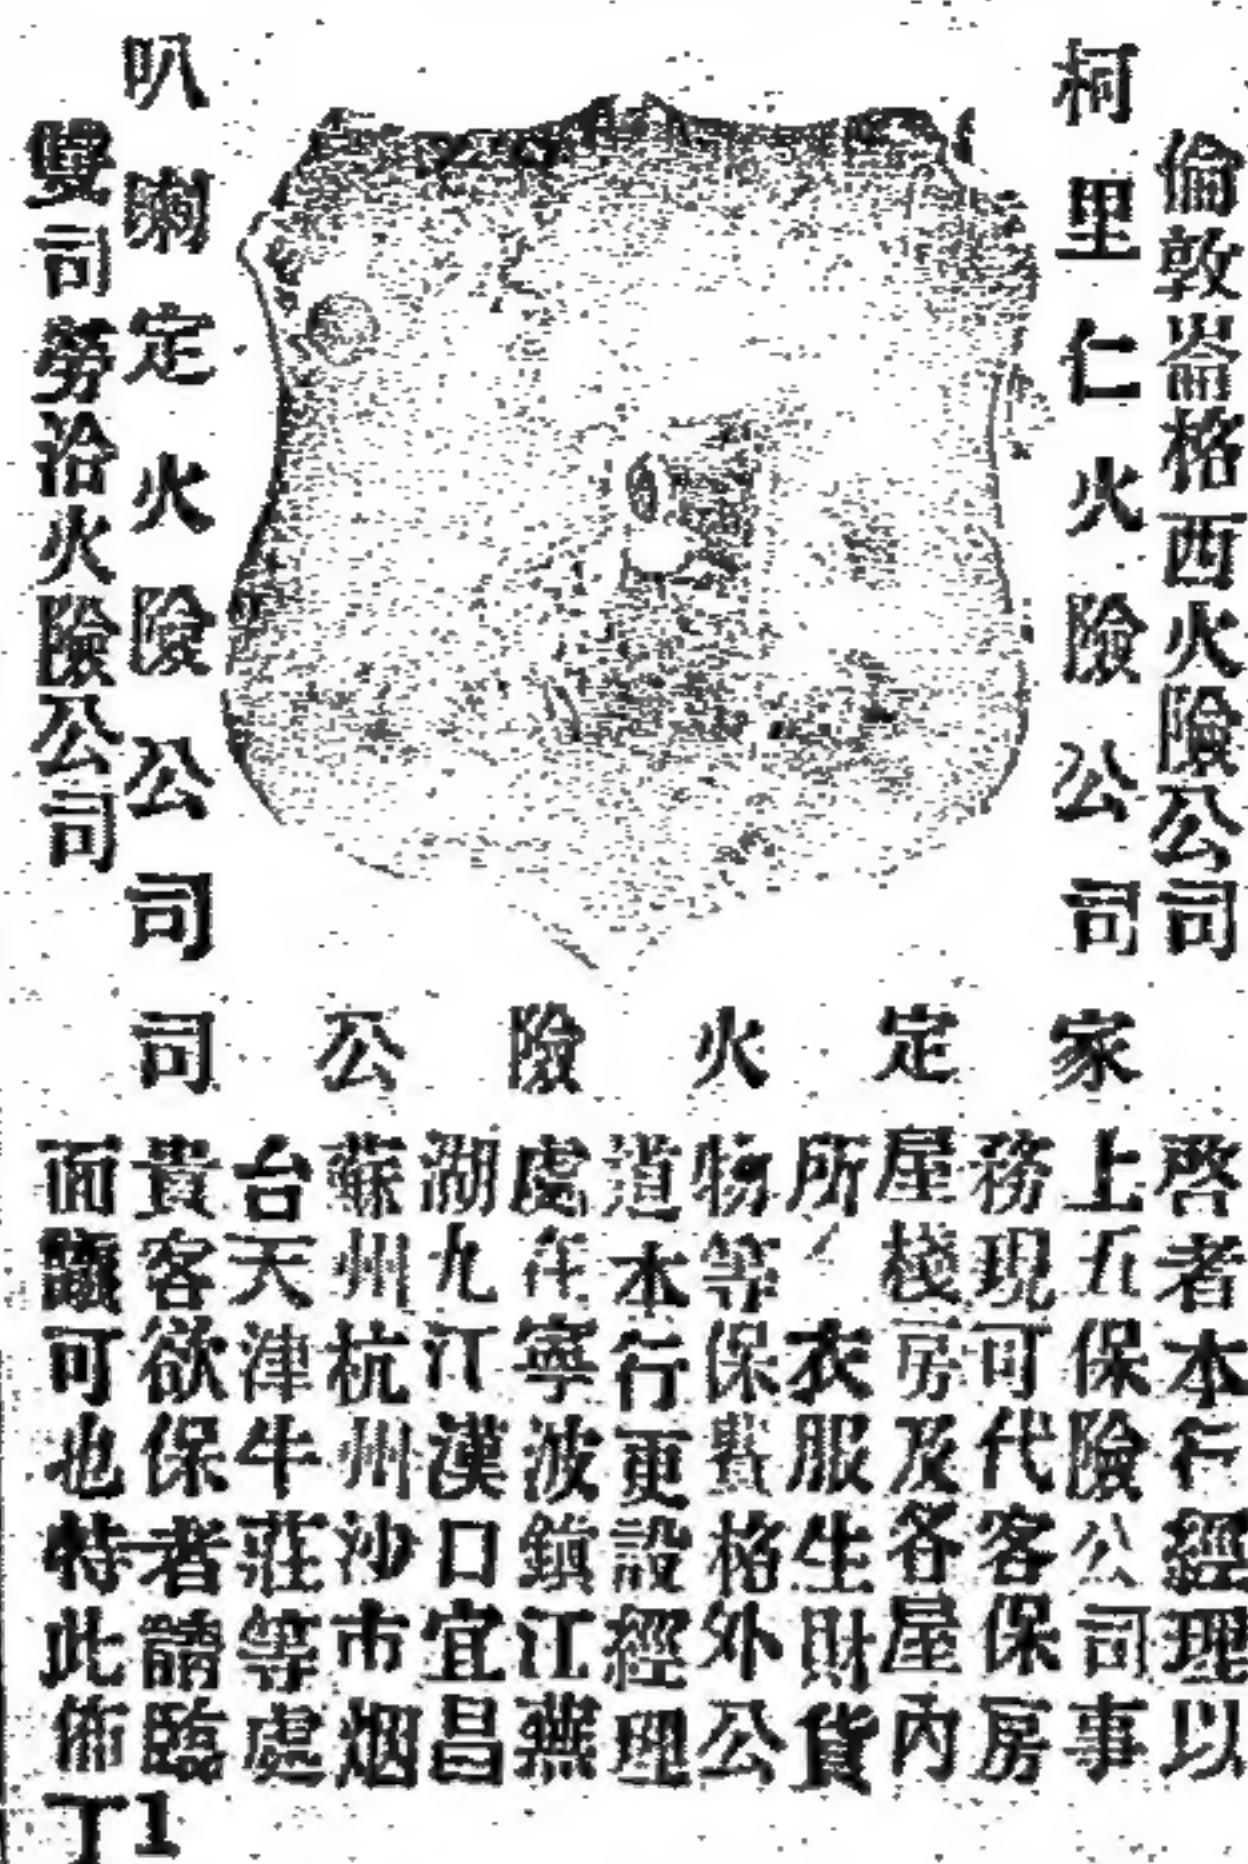 倫敦崙格西火險公司
柯里仁火險公司
叭喇定火險公司
司勞洽火險公司
家定火險公司
啓者本行經理以
上五保險公司事
務現可代客保房
屋棧房及各屋內
所 衣服生財貨
物等保費格外公
道本行更設經理
處在寧波鎮江蕪
湖九江漢口宜昌
蘇州杭州沙市烟
台天津牛莊等處
貴客欲保者請臨1
面議可也特此佈